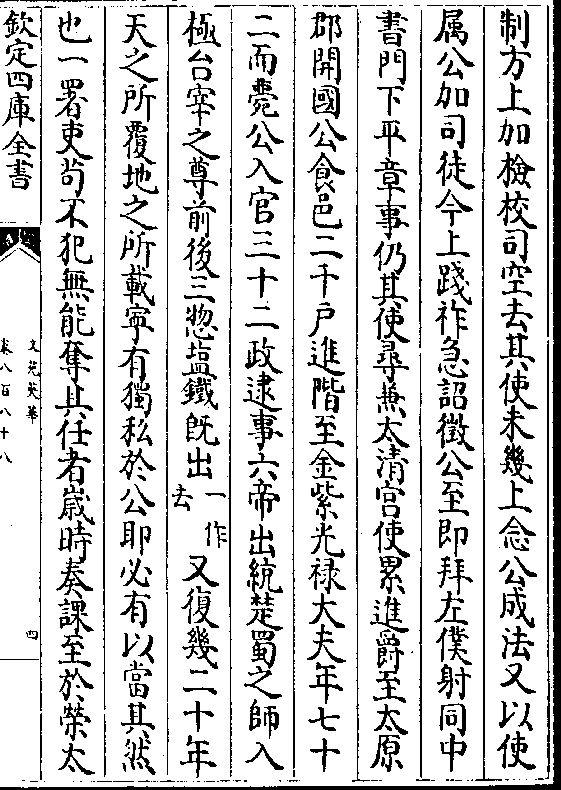 制方上加檢校司空去其使未幾上念公成法又以使
属公加司徒今上踐祚急詔徵公至即拜左僕射同中
書門下平章事仍其使尋兼太清宫使累進爵至太原
郡開國公食邑二千戸進階至金紫光禄大夫年七十
二而薨公入官三十二政逮事六帝出統楚蜀之師入
極台宰之尊前後三惣塩鐵既出一作去又復幾二十年
天之所覆地之所載寜有獨私於公耶必有以當其然
也一署吏茍不犯無能奪其任者嵗時奏課至於榮太
欽定四庫全書
文苑英華
卷八百八十八
四